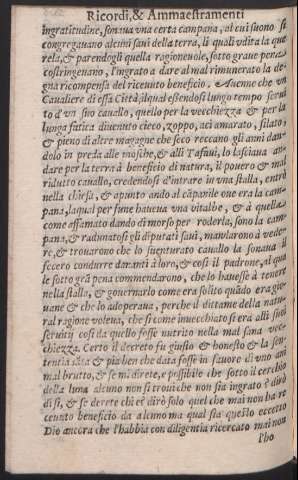 Ricordi,& Ammaestramenti
ingratitudine, sonaua vna certa campana, al cui suono si
congregauano alcuni saui della terra, li quali vdita la que
rela, & parendogli quella ragioneuole, sotto graue pena
costringeuano, l'ingrato a dare al mal rimunerato la de-
gna ricompensa del riceuuto beneficio. Auenne che vn
Caualiere di essa Città, il qual essendosi lungo tempo serui
to d'vn suo cauallo, quello per la vecchiezza & per la
lunga fatica diuenuto cieco, zoppo, sfilato,
& pieno di altre magagne che seco reccano gli anni dan-
dolo in preda alle mosche, & alli Tafani, lo lasciaua an-
dare per la terra à beneficio di natura, il pouero & mal
ridutto cauallo, credendosi d'intrare in vna stalla, entrò
nella chiesa, & apunto andò al campanile oue era la cam-
pana, laqual per fune haueua vna vitalbe, & à quella
come affamato dando di morso per roderla, sonò la cam-
pana, & radunatosi gli diputati saui, mandarono à vede-
re, & trouarono che lo suenturato cauallo la sonaua il
fecero condurre dauanti à loro, & così il padrone, al qual
sotto grā pena commendarono, che lo hauesse à tenere
nella stalla, & gouernarlo come era solito quādo era gio-
uane & che lo adoperaua, perche il dittame della natu-
ral ragione voleua, che si come inuecchiato si era alli suoi
seruitij così da quello fosse nutrito nella mal sana vec-
chiezza. Certo il decreto fu giusto & honesto & la sen-
tentia alta & pia ben che data fosse in fauore di vno ani
mal brutto, & se mi direte, e possibile che sotto il cerchio
della luna alcuno non si troui che non sia ingrato è dirò
di si, & se derete chi è dirò solo quel che mai non ha re
ceuuto beneficio da alcuno ma qual sia questo eccetto
Dio ancora che l'habbia con diligentia ricercato mai non
l'ho